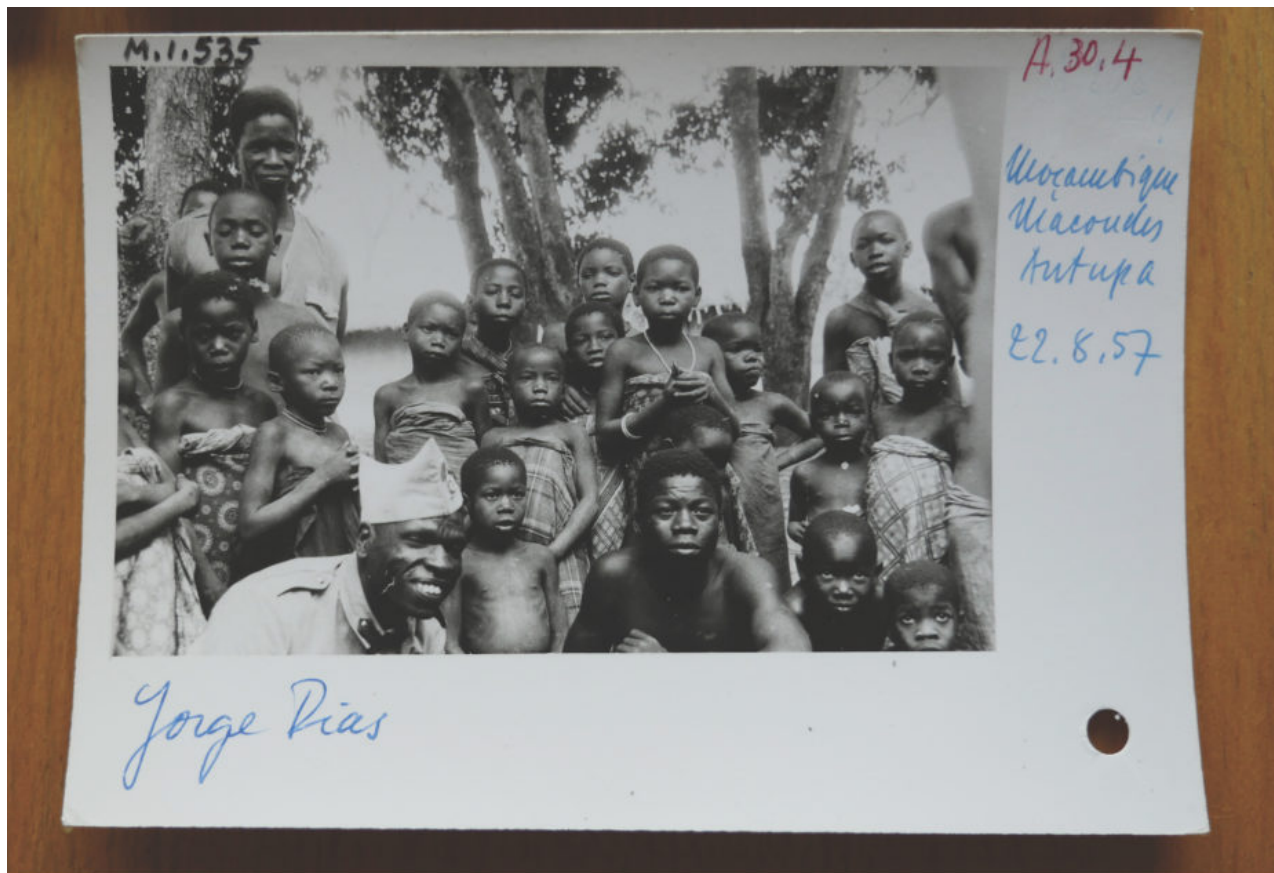 M.1.535
A.30.4
Moçambique
Macondes
Antupa
22.8.57
Jorge Dias